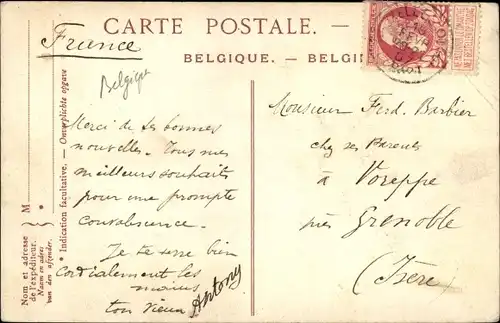 CARTE POSTALE.
France
BELGIQUE. — BELGI
Belgique
Merci de tes bonnes
nouvelles. Tous mes
meilleurs souhaits
pour une prompte
convalescence.
Je te serre bien
cordialement les
mains
ton vieux Antony
Monsieur Ferd. Barbier
chez ses Parents
à Voreppe
près Grenoble
(Isère)
Nom et adresse
de l'expéditeur.
Naam en adres
van den afzender.
M
* Indication facultative. — Onverplichte opgave
*